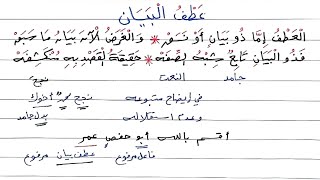 عَطْفُ الْبَيَانِ
الْعَطْفُ إِمَّا ذُو بَيَانٍ أَوْ نَسَقْ * وَالْغَرَضُ الْآنَ بَيَانُ مَا سَبَقْ
فَذُو الْبَيَانِ تَابِعٌ شِبْهُ الصِّفَهْ * حَقِيقَةُ الْقَصْدِ بِهِ مُنْكَشِفَهْ
جامد النعت
في إيضاح متبوعه نجح محمد أخوك
وعدم استقلاله بدل جامد
أقسم بالله أبو حفص عمر
فاعل مرفوع عطف بيان مرفوع